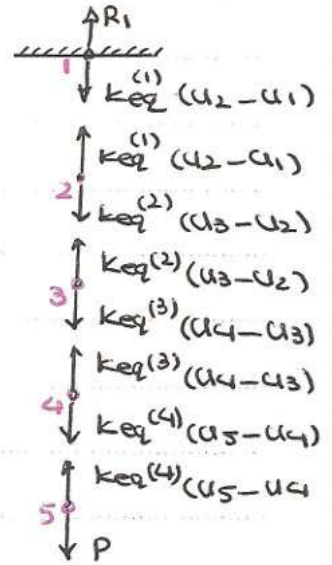 R₁
1
keq⁽¹⁾ (u₂ – u₁)
keq⁽¹⁾ (u₂ – u₁)
2
keq⁽²⁾ (u₃ – u₂)
keq⁽²⁾ (u₃ – u₂)
3
keq⁽³⁾ (u₄ – u₃)
keq⁽³⁾ (u₄ – u₃)
4
keq⁽⁴⁾ (u₅ – u₄)
keq⁽⁴⁾ (u₅ – u₄
5
P